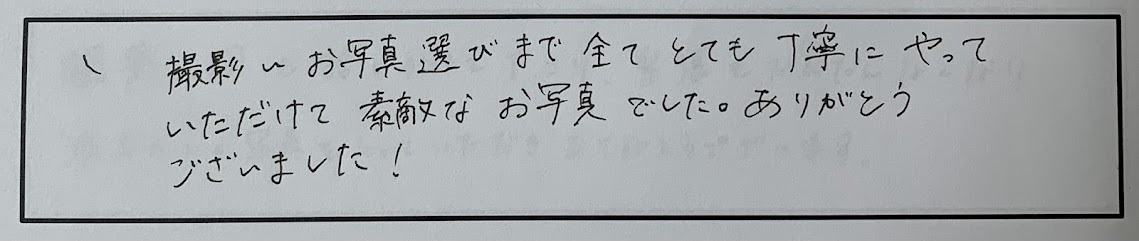 撮影〜お写真選びまで全てとても丁寧にやって
いただけて素敵なお写真でした。ありがとう
ございました!